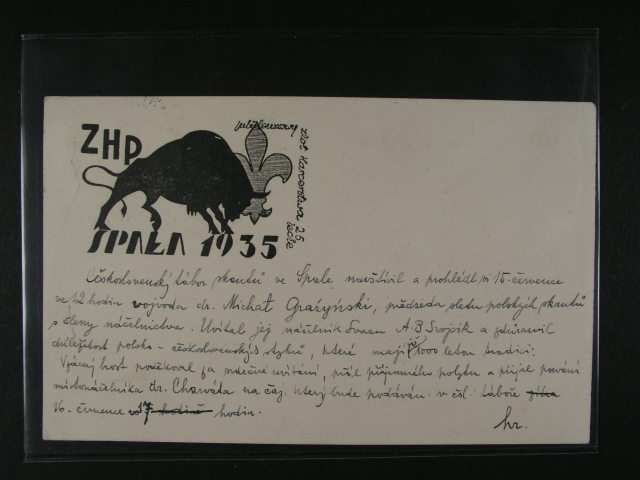 ZHP
jubileuszowy
zlot Harcerstwa 25
lecie
SPAŁA 1935
Československý tábor skautů ve Spale navštívil a prohlédl si 15. července
ve 12 hodin vojvoda dr. Michał Grażyński, předseda sletu polských skautů
s členy náčelnictva. Uvítal jej náčelník Svazu A.B. Svojsík a zdůraznil
důležitost polsko - československých styků, které mají již 1000 letou tradici.
Vzácný host poděkoval za srdečné uvítání, přál příjemného pobytu a přijal pozvání
místonáčelníka dr. Charváta na čaj, který bude podáván v čsl. táboře
16. července v 17 hodin.